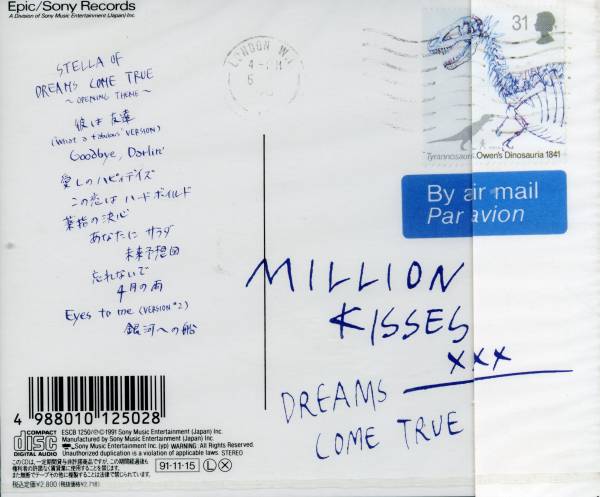 Epic/Sony Records
A Division of Sony Music Entertainment (Japan) Inc.
STELLA OF
DREAMS COME TRUE
~OPENING THEME~
彼は友達
(What a fabulous VERSION)
Goodbye, Darlin'
愛しのハピィデイズ
この恋はハードボイルド
薬指の決心
あなたにサラダ
未来予想図
忘れないで
4月の雨
Eyes to me (VERSION #2)
銀河への船
LONDON W1
31
Tyrannosaurus Owen's Dinosauria 1841
By air mail
Par avion
MILLION
KISSES
xxx
DREAMS
COME TRUE
4 988010 125028
COMPACT
disc
DIGITAL AUDIO
ESCB 1250/ⒸⓅ1991 Sony Music Entertainment (Japan) Inc.
Manufactured by Sony Music Entertainment (Japan) Inc.
Sony Music Entertainment Inc. (yp) WARNING: All Rights Reserved.
Unauthorized duplication is a violation of applicable laws. STEREO
このCDは、一定期間貸与非許諾商品ですが、この期間経過後も
権利者の許諾なく賃貸業に使用することを禁じます。
また無断でテープその他に複製することは法律で禁じられています。
税込定価¥2,800(税抜価格¥2,718)
91-11-15 Ⓛ Ⓧ